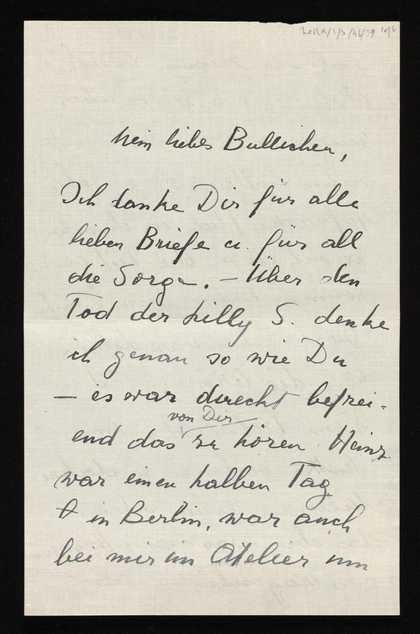 Mein liebes Bullichen,
Ich danke Dir für alle
lieben Briefe u. für all
die Sorge. – Über den
Tod der Lilly S. denke
ich genau so wie Du
– es war direcht befrei-
von Dir
end das zu hören. Heinz
war einen halben Tag
in Berlin, war auch
bei mir im Atelier um